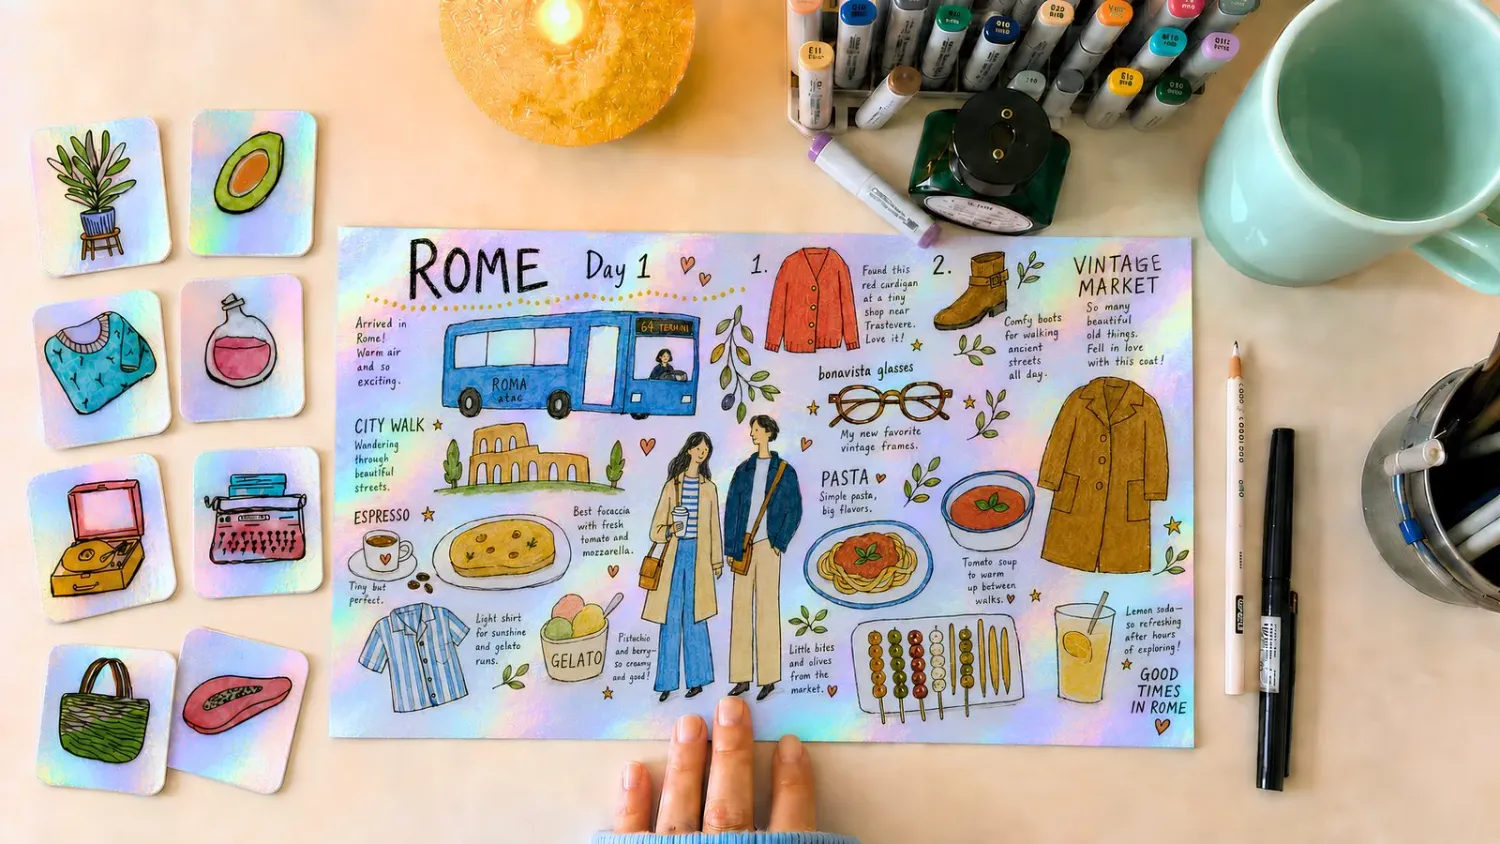 ROME Day 1
Arrived in
Rome!
Warm air
and so
exciting.
64 TERMINI
ROMA
atac
CITY WALK
Wandering
through
beautiful
streets.
ESPRESSO
Tiny but
perfect.
Best focaccia
with fresh
tomato and
mozzarella.
Light shirt
for sunshine
and gelato
runs.
GELATO
Pistachio
and berry—
so creamy
and good!
1.
Found this
red cardigan
at a tiny
shop near
Trastevere.
Love it!
2.
Comfy boots
for walking
ancient
streets
all day.
VINTAGE
MARKET
So many
beautiful
old things.
Fell in love
with this coat!
bonavista glasses
My new favorite
vintage frames.
PASTA
Simple pasta,
big flavors.
Tomato soup
to warm
up between
walks.
Little bites
and olives
from the
market.
Lemon soda—
so refreshing
after hours
of exploring!
GOOD
TIMES
IN ROME
E11